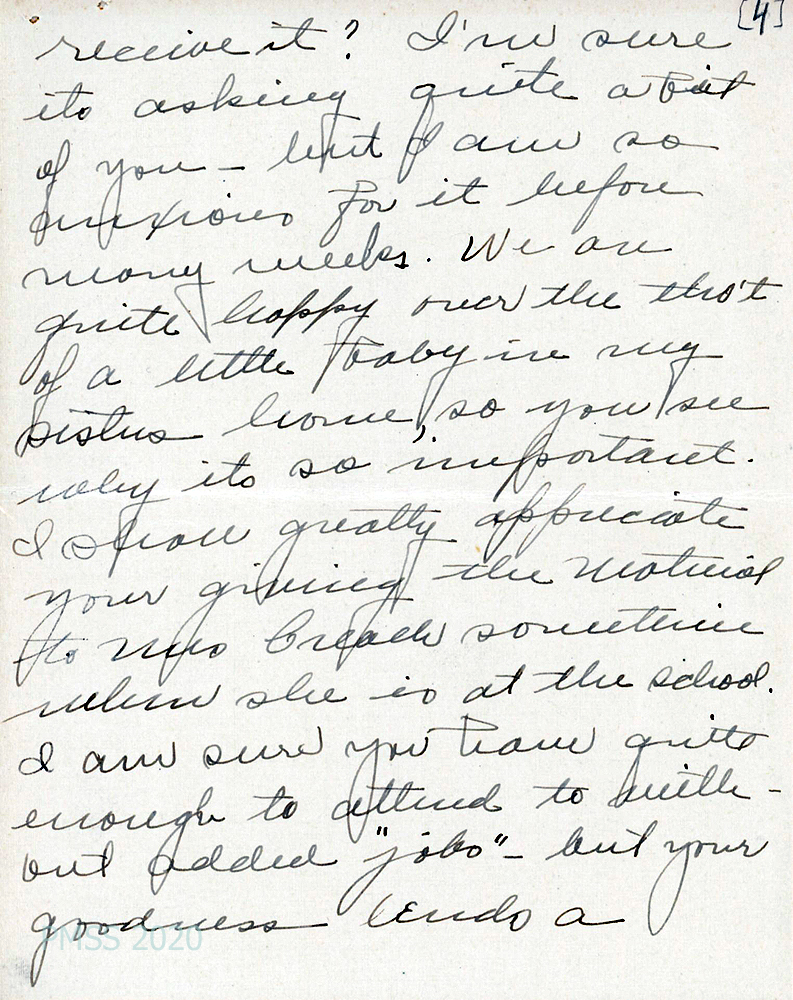 [4]
receive it? I'm sure
its asking quite a bit
of you – but I am so
anxious for it before
many weeks. We are
quite happy over the tho't
of a little baby in my
sisters home, so you see
why its so important.
I shall greatly appreciate
your giving the material
to Mrs Creach sometime
when she is at the school.
I am sure you have quite
enough to attend to with-
out added "jobs" – but your
goodness lends a
PMSS 2020